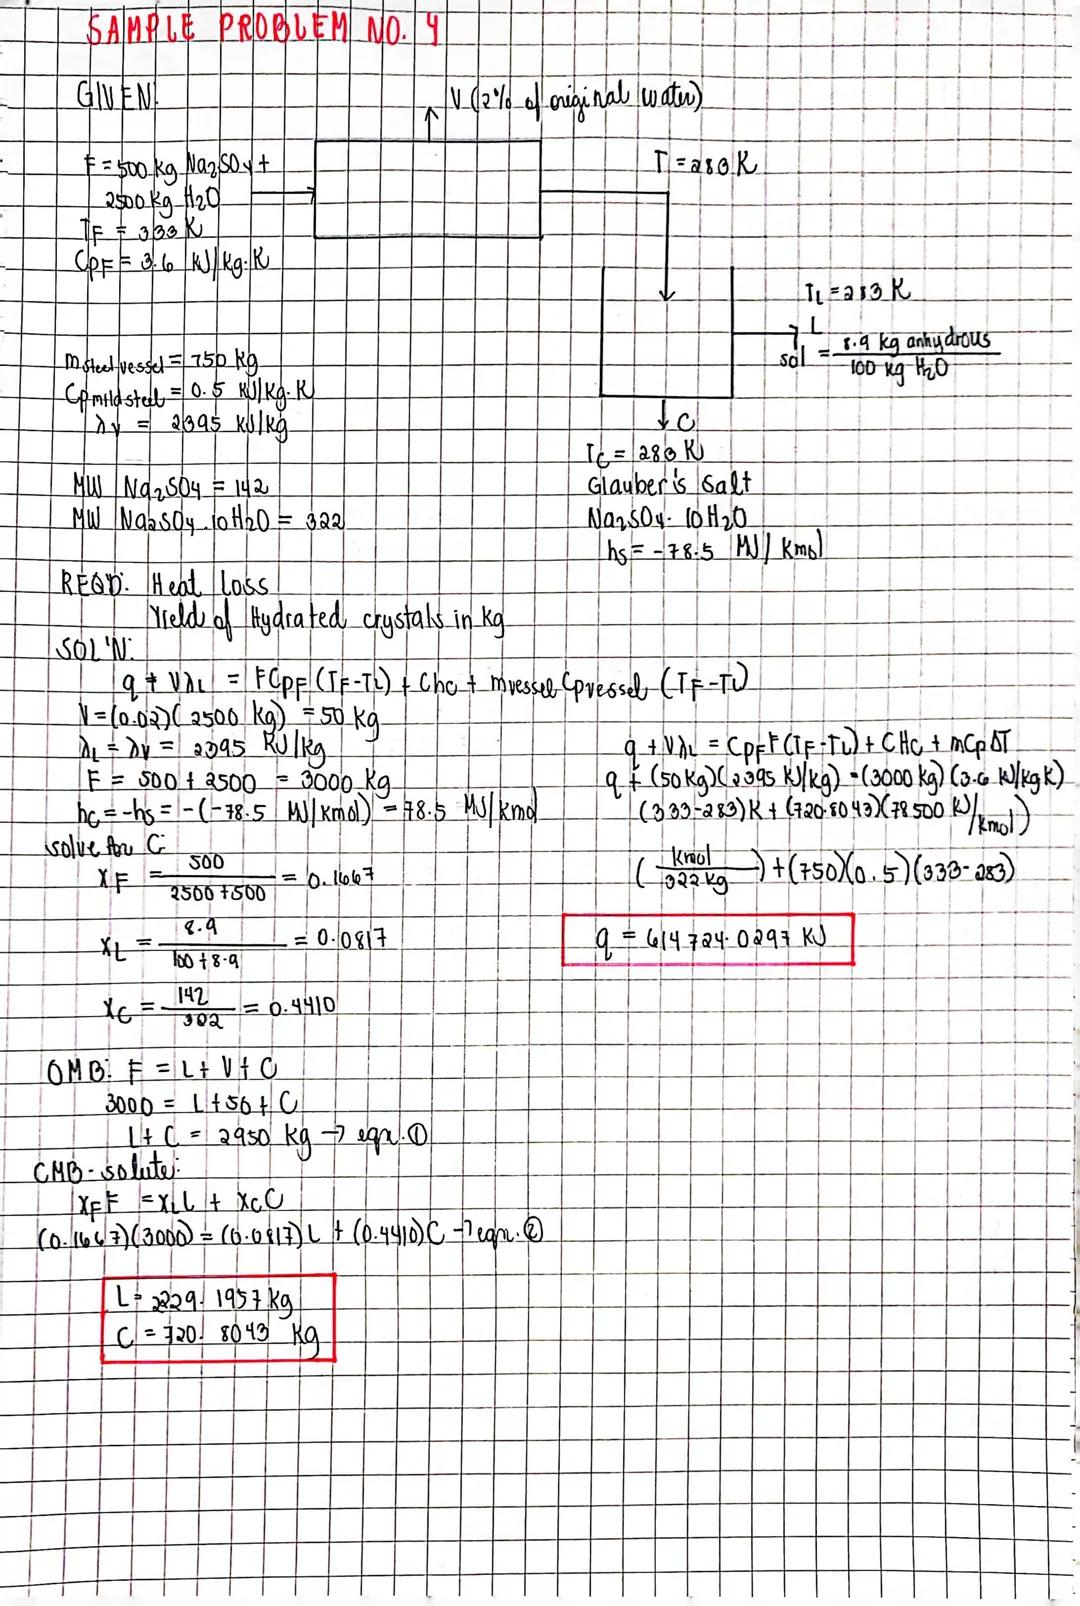 SAMPLE PROBLEM NO. 4
GIVEN:
V (2% of original water)
F = 500 kg Na2SO4 +
2500 kg H2O
TF = 333 K
CpF = 3.6 KJ/kg·K
T = 283 K
TL = 283 K
L
sol = 8.9 kg anhydrous / 100 kg H2O
m steel vessel = 750 kg
Cp mild steel = 0.5 KJ/kg·K
λv = 2395 KJ/kg
C
TC = 283 K
Glauber's salt
Na2SO4 · 10 H2O
hs = -78.5 MJ/kmol
MW Na2SO4 = 142
MW Na2SO4 · 10H2O = 322
REQ'D: Heat loss
Yield of Hydrated crystals in kg
SOL'N:
q + VλL = FCpF (TF-TL) + Chc + mvessel Cpvessel (TF-TL)
V = (0.02)(2500 kg) = 50 kg
λL = λv = 2395 KJ/kg
F = 500 + 2500 = 3000 kg
hc = -hs = -(-78.5 MJ/kmol) = 78.5 MJ/kmol
solve for C:
XF = 500 / 2500 + 500 = 0.1667
XL = 8.9 / 100 + 8.9 = 0.0817
XC = 142 / 322 = 0.4410
q + VλL = CpF F(TF-TL) + CHc + mCpΔT
q + (50kg)(2395 KJ/kg) = (3000 kg)(3.6 KJ/kgK)
(333-283)K + (720.8043)(78500 KJ/kmol)
(kmol / 322 kg) + (750)(0.5)(333-283)
q = 614724.0297 KJ
OMB: F = L + V + C
3000 = L + 50 + C
L + C = 2950 kg → eqn. ①
CMB - solute:
XFF = XLL + XCC
(0.1667)(3000) = (0.0817)L + (0.4410)C → eqn. ②
L = 2229.1957 kg
C = 720.8043 kg